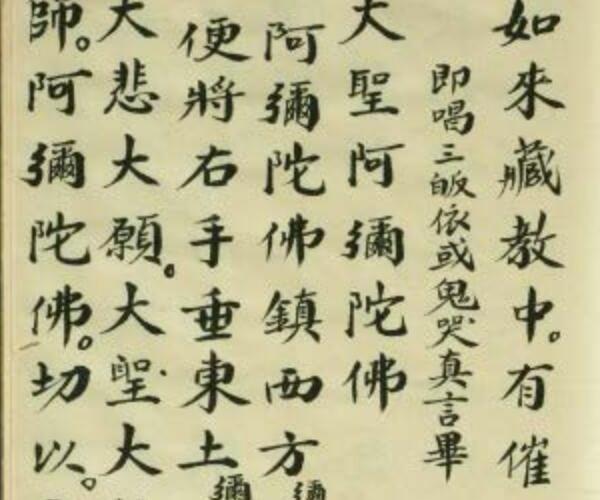 如來藏教中。有催
即唱三皈依或鬼哭真言畢
大聖阿彌陀佛
阿彌陀佛鎮西方彌
便將右手垂東土彌
大悲大願。大聖大
師。阿彌陀佛。切以。